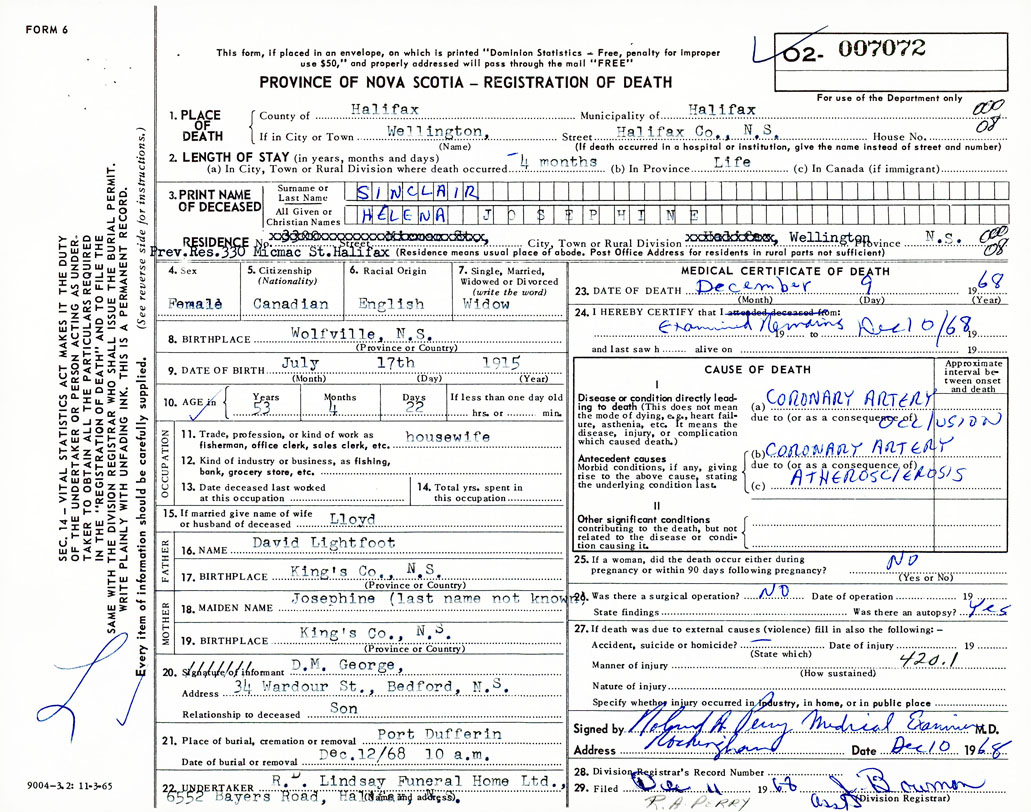 FORM 6
This form, if placed in an envelope, on which is printed "Dominion Statistics – Free, penalty for improper
use $50," and properly addressed will pass through the mail "FREE"
PROVINCE OF NOVA SCOTIA – REGISTRATION OF DEATH
O2- 007072
For use of the Department only
000
08
1. PLACE OF DEATH
County of Halifax Municipality of Halifax
If in City or Town Wellington, Street Halifax Co., N.S. House No.
(Name) (If death occurred in a hospital or institution, give the name instead of street and number)
2. LENGTH OF STAY (in years, months and days)
(a) In City, Town or Rural Division where death occurred 4 months (b) In Province Life (c) In Canada (if immigrant)
3. PRINT NAME OF DECEASED
Surname or Last Name SINCLAIR
All Given or Christian Names HELENA JOSEPHINE
RESIDENCE No. Street City, Town or Rural Division Halifax, Wellington Province N.S. 000
08
Prev.Res.330 Micmac St.Halifax (Residence means usual place of abode. Post Office Address for residents in rural parts not sufficient)
4. Sex
Female
5. Citizenship
(Nationality)
Canadian
6. Racial Origin
English
7. Single, Married,
Widowed or Divorced
(write the word)
Widow
8. BIRTHPLACE Wolfville, N.S.
(Province or Country)
9. DATE OF BIRTH July 17th 1915
(Month) (Day) (Year)
10. AGE in
Years 53
Months 4
Days 22
If less than one day old
hrs. or min.
OCCUPATION
11. Trade, profession, or kind of work as
fisherman, office clerk, sales clerk, etc. housewife
12. Kind of industry or business, as fishing,
bank, grocery store, etc.
13. Date deceased last worked
at this occupation
14. Total yrs. spent in
this occupation
15. If married give name of wife
or husband of deceased Lloyd
FATHER
16. NAME David Lightfoot
17. BIRTHPLACE King's Co., N.S.
(Province or Country)
MOTHER
18. MAIDEN NAME Josephine (last name not known)
19. BIRTHPLACE King's Co., N.S.
(Province or Country)
20. Signature of informant D.M. George,
Address 34 Wardour St., Bedford, N.S.
Relationship to deceased Son
21. Place of burial, cremation or removal Port Dufferin
Date of burial or removal Dec.12/68 10 a.m.
22. UNDERTAKER R. Lindsay Funeral Home Ltd.,
6552 Bayers Road, Hal (Name and address).
MEDICAL CERTIFICATE OF DEATH
23. DATE OF DEATH December 9 1968
(Month) (Day) (Year)
24. I HEREBY CERTIFY that I attended deceased from:
Examined Remains 19 Dec 10/68 19
and last saw h alive on 19
CAUSE OF DEATH
Approximate interval between onset and death
I
Disease or condition directly leading
to death (This does not mean
the mode of dying, e.g., heart failure,
asthenia, etc. It means the
disease, injury, or complication
which caused death.)
(a) CORONARY ARTERY
due to (or as a consequence of) OCCLUSION
Antecedent causes
Morbid conditions, if any, giving
rise to the above cause, stating
the underlying condition last.
(b) CORONARY ARTERY
due to (or as a consequence of)
(c) ATHEROSCLEROSIS
II
Other significant conditions
contributing to the death, but not
related to the disease or condition
causing it.
25. If a woman, did the death occur either during
pregnancy or within 90 days following pregnancy? NO
(Yes or No)
26. Was there a surgical operation? NO Date of operation 19
State findings Was there an autopsy? Yes
27. If death was due to external causes (violence) fill in also the following: –
Accident, suicide or homicide? – Date of injury 19
(State which)
Manner of injury 420.1
(How sustained)
Nature of injury
Specify whether injury occurred in industry, in home, or in public place
Signed by Roland A Perry Medical Examiner M.D.
Address Rockingham Date Dec 10 1968
28. Division Registrar's Record Number
29. Filed Dec 11 1968 J. Bowman
R.A PERRY Asst (Division Registrar)
SEC. 14 – VITAL STATISTICS ACT MAKES IT THE DUTY
OF THE UNDERTAKER OR PERSON ACTING AS UNDER-
TAKER TO OBTAIN ALL THE PARTICULARS REQUIRED
IN THE "REGISTRATION OF DEATH" AND TO FILE THE
SAME WITH THE DIVISION REGISTRAR WHO SHALL ISSUE THE BURIAL PERMIT.
WRITE PLAINLY WITH UNFADING INK. THIS IS A PERMANENT RECORD.
Every item of information should be carefully supplied. (See reverse side for instructions.)
9004-3.2: 11-3-65